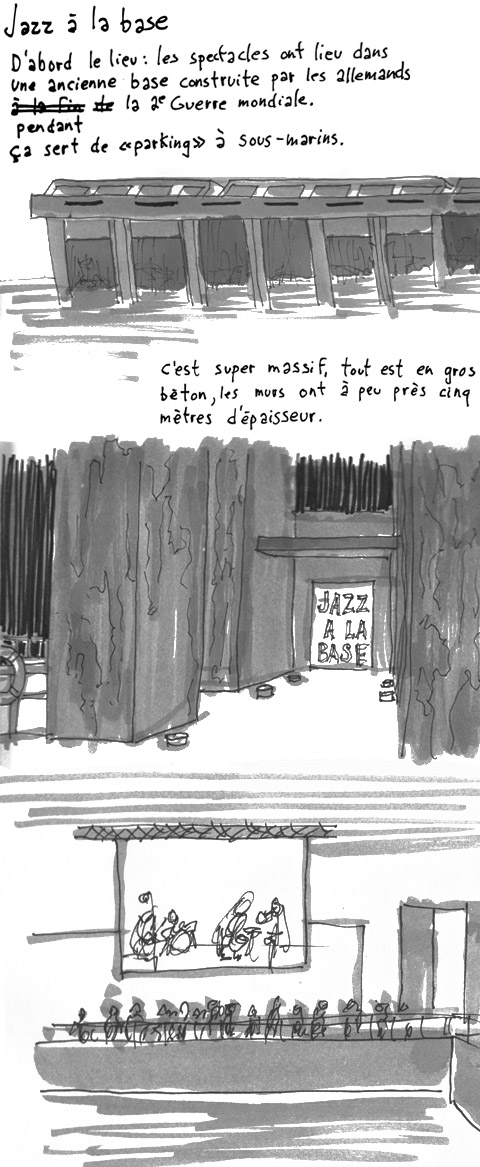 Jazz à la base
D'abord le lieu : les spectacles ont lieu dans
une ancienne base construite par les allemands
à la fin de la 2e Guerre mondiale.
pendant
ça sert de «parking» à sous-marins.
c'est super massif, tout est en gros
bèton, les murs ont à peu près cinq
mètres d'épaisseur.
JAZZ
A LA
BASE